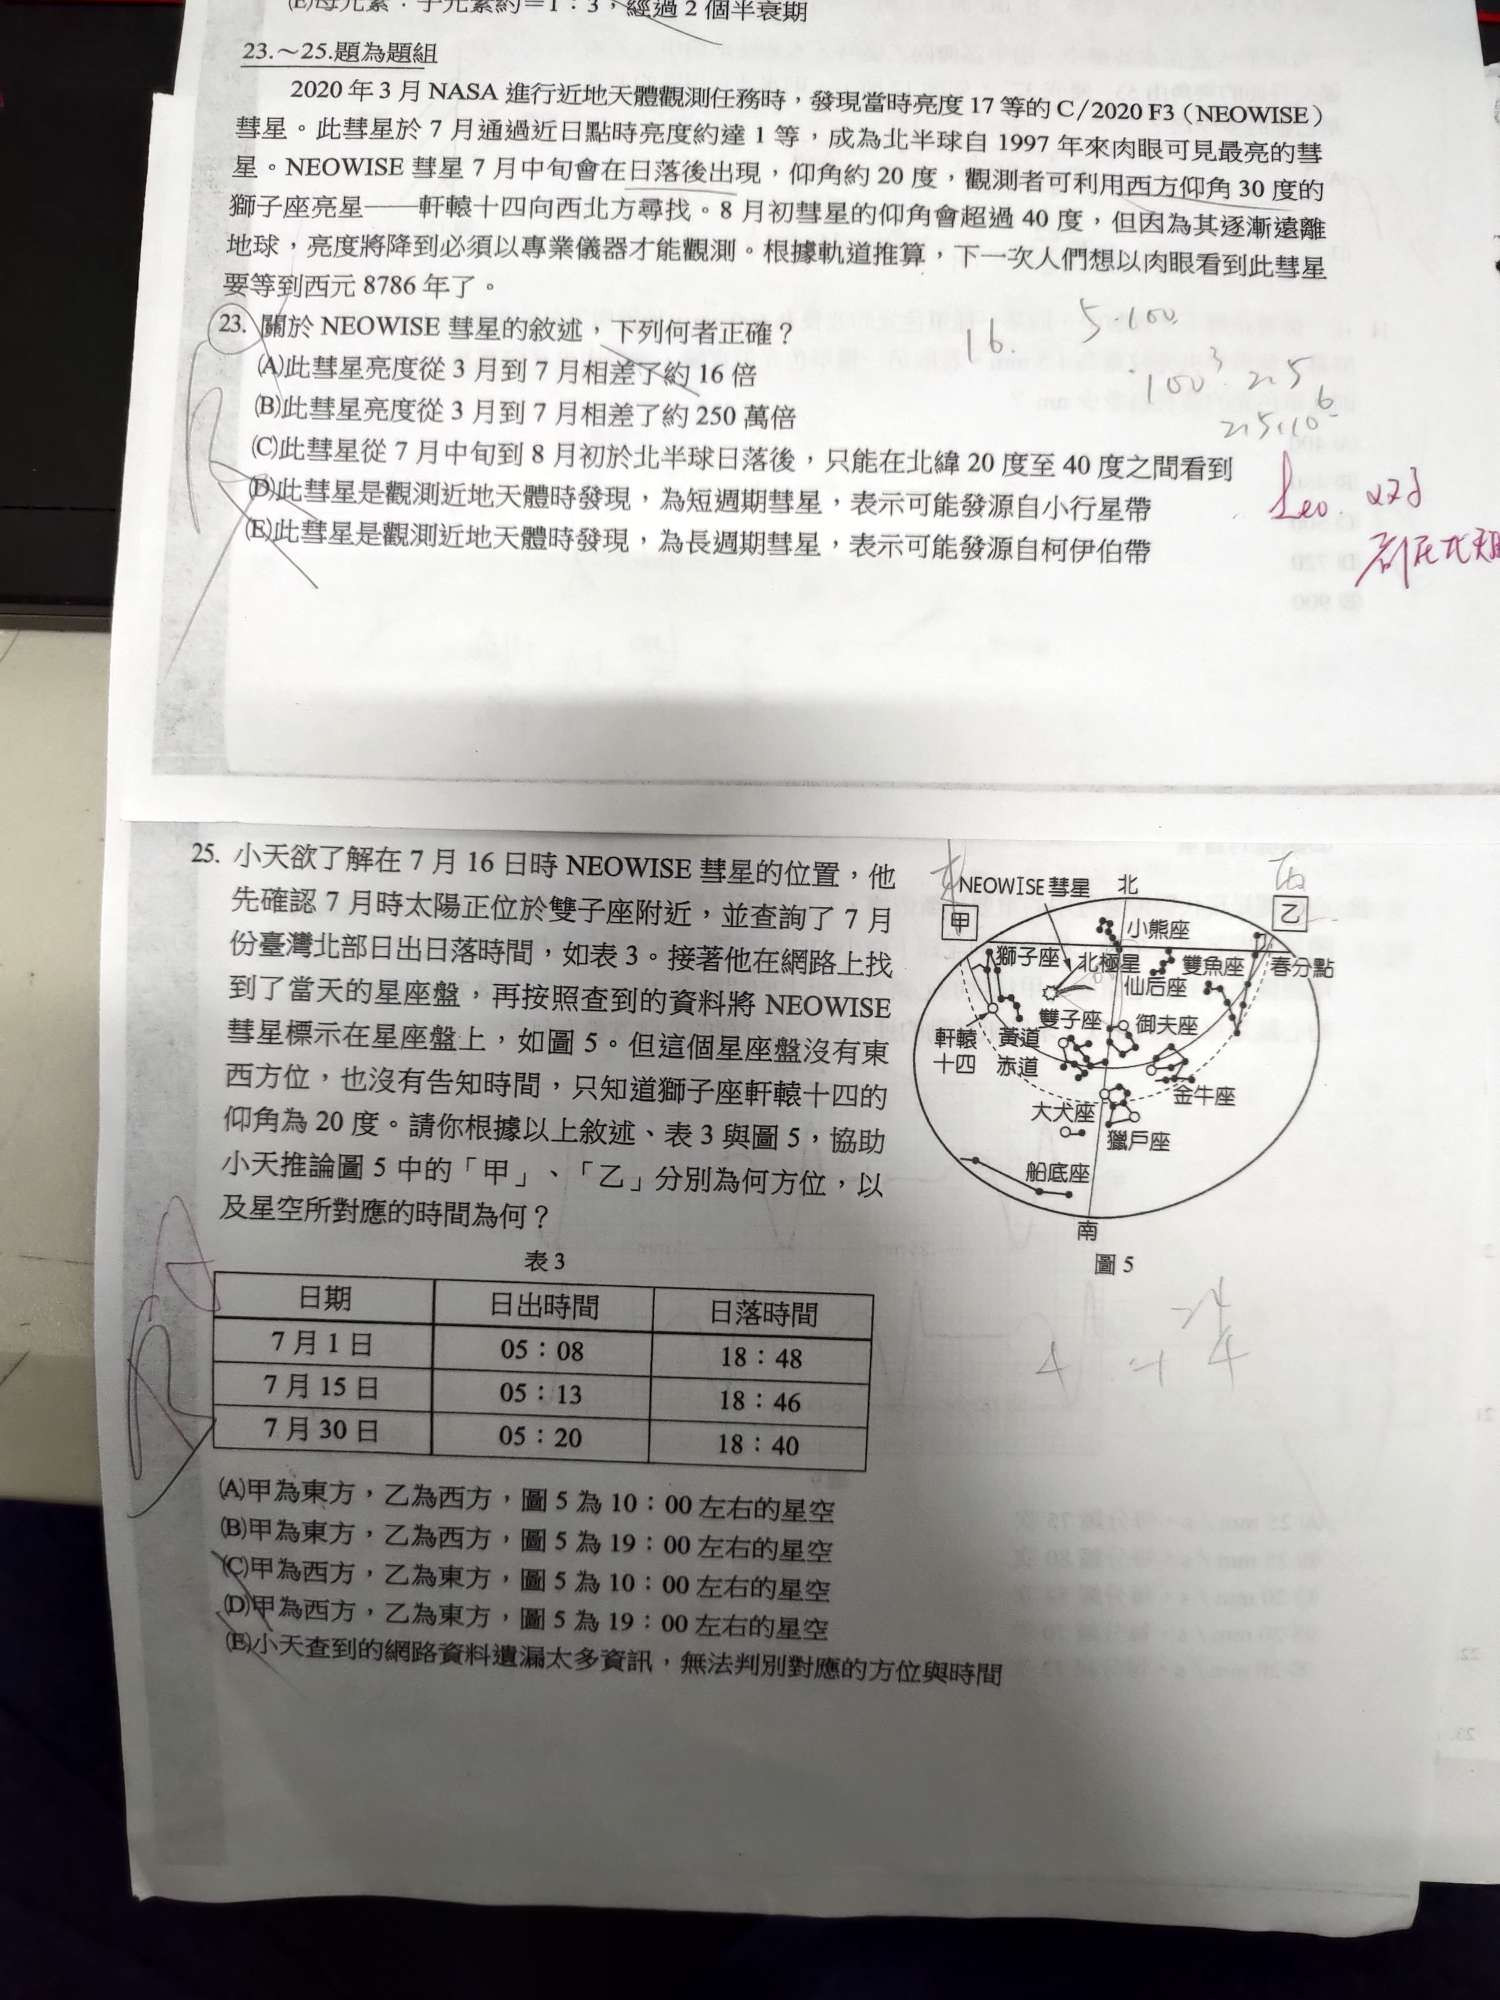 (E)母元素:子元素約=1:3,經過 2 個半衰期
23.~25.題為題組
2020 年 3 月 NASA 進行近地天體觀測任務時,發現當時亮度 17 等的 C/2020 F3(NEOWISE)
彗星。此彗星於 7 月通過近日點時亮度約達 1 等,成為北半球自 1997 年來肉眼可見最亮的彗
星。NEOWISE 彗星 7 月中旬會在日落後出現,仰角約 20 度,觀測者可利用西方仰角 30 度的
獅子座亮星——軒轅十四向西北方尋找。8 月初彗星的仰角會超過 40 度,但因為其逐漸遠離
地球,亮度將降到必須以專業儀器才能觀測。根據軌道推算,下一次人們想以肉眼看到此彗星
要等到西元 8786 年了。
23. 關於 NEOWISE 彗星的敘述,下列何者正確?
(A)此彗星亮度從 3 月到 7 月相差了約 16 倍
(B)此彗星亮度從 3 月到 7 月相差了約 250 萬倍
(C)此彗星從 7 月中旬到 8 月初於北半球日落後,只能在北緯 20 度至 40 度之間看到
(D)此彗星是觀測近地天體時發現,為短週期彗星,表示可能發源自小行星帶
(E)此彗星是觀測近地天體時發現,為長週期彗星,表示可能發源自柯伊伯帶
16.
5 100
100³ 2.5
2.5×10⁶
Leo.
25. 小天欲了解在 7 月 16 日時 NEOWISE 彗星的位置,他
先確認 7 月時太陽正位於雙子座附近,並查詢了 7 月
份臺灣北部日出日落時間,如表 3。接著他在網路上找
到了當天的星座盤,再按照查到的資料將 NEOWISE
彗星標示在星座盤上,如圖 5。但這個星座盤沒有東
西方位,也沒有告知時間,只知道獅子座軒轅十四的
仰角為 20 度。請你根據以上敘述、表 3 與圖 5,協助
小天推論圖 5 中的「甲」、「乙」分別為何方位,以
及星空所對應的時間為何?
東
西
NEOWISE 彗星
北
甲
乙
小熊座
獅子座
北極星
雙魚座
春分點
仙后座
雙子座
御夫座
軒轅
十四
黃道
赤道
金牛座
大犬座
獵戶座
船底座
南
圖 5
表 3
日期 日出時間 日落時間
7 月 1 日 05:08 18:48
7 月 15 日 05:13 18:46
7 月 30 日 05:20 18:40
(A)甲為東方,乙為西方,圖 5 為 10:00 左右的星空
(B)甲為東方,乙為西方,圖 5 為 19:00 左右的星空
(C)甲為西方,乙為東方,圖 5 為 10:00 左右的星空
(D)甲為西方,乙為東方,圖 5 為 19:00 左右的星空
(E)小天查到的網路資料遺漏太多資訊,無法判別對應的方位與時間